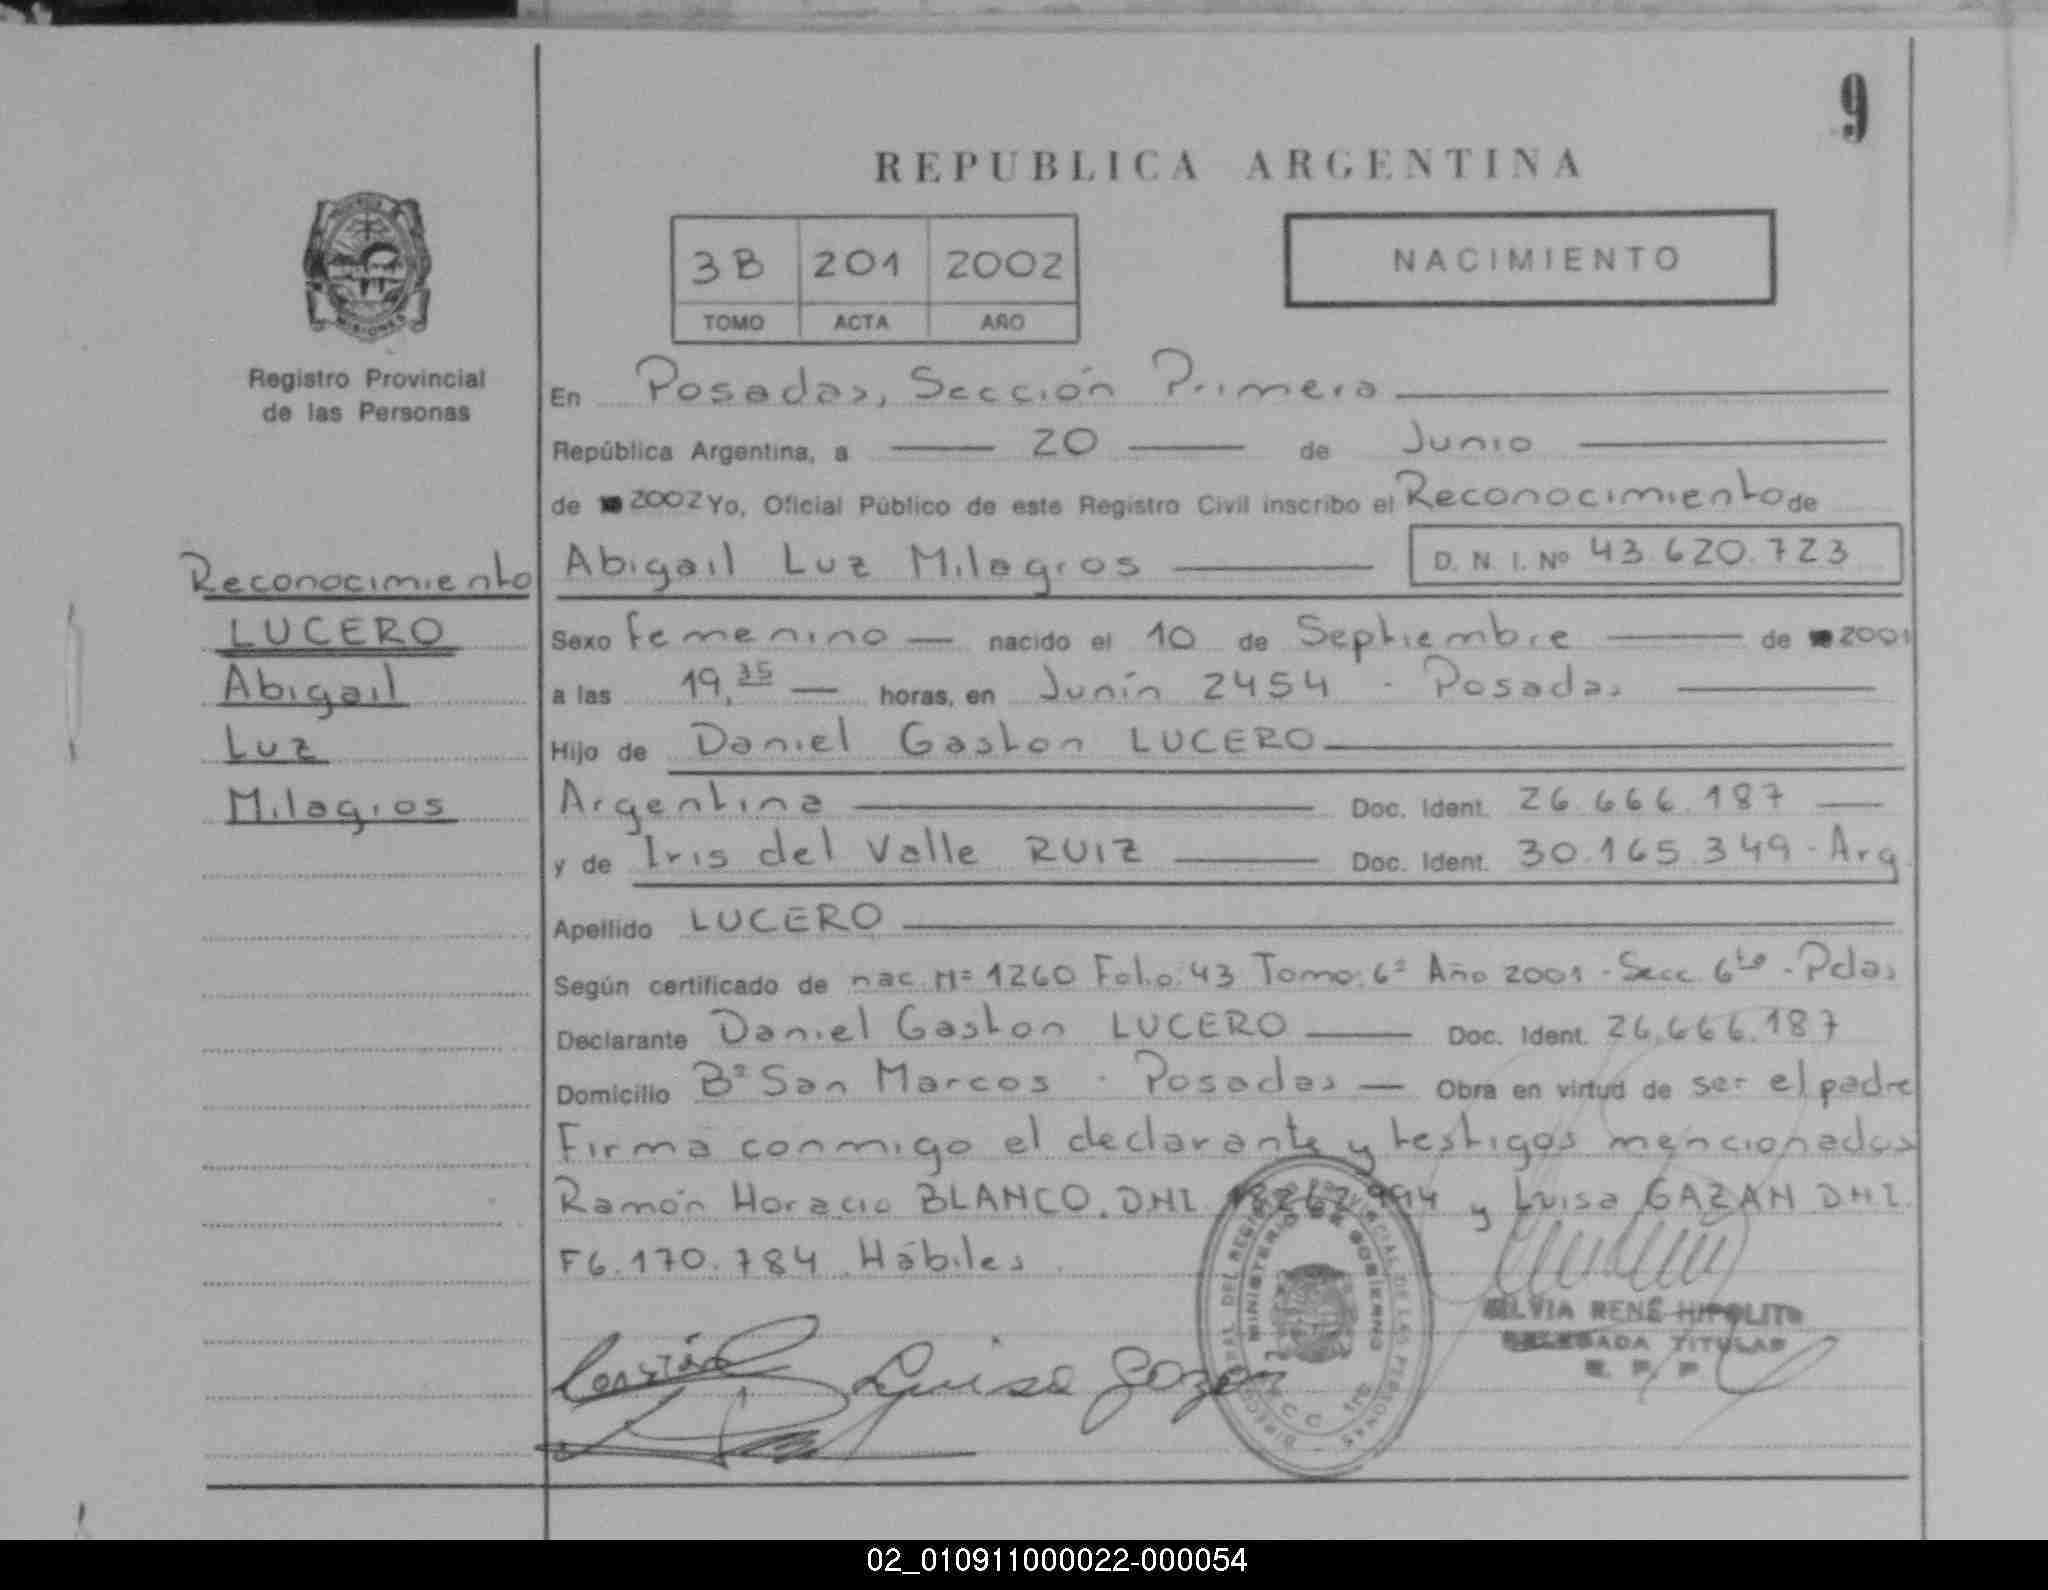 9
REPUBLICA ARGENTINA
3B 201 2002
TOMO ACTA AÑO
NACIMIENTO
MISIONES
Registro Provincial
de las Personas
En Posadas, Sección Primera
República Argentina, a 20 de Junio
de 2002 Yo, Oficial Público de este Registro Civil inscribo el Reconocimiento de
Abigail Luz Milagros D. N. I. Nº 43.620.723
Reconocimiento
LUCERO
Abigail
Luz
Milagros
Sexo femenino nacido el 10 de Septiembre de 2001
a las 19,35 horas, en Junín 2454 - Posadas
Hijo de Daniel Gaston LUCERO
Argentina Doc. Ident. 26.666.187
y de Iris del Valle RUIZ Doc. Ident. 30.165.349 - Arg.
Apellido LUCERO
Según certificado de nac. Nº 1260 Folio: 43 Tomo: 6º Año 2001 - Secc. 6ta - Pdas
Declarante Daniel Gaston LUCERO Doc. Ident. 26.666.187
Domicilio Bº San Marcos - Posadas Obra en virtud de ser el padre
Firma conmigo el declarante y testigos mencionados
Ramón Horacio BLANCO. DNI y Luisa GAZAN DNI.
F6.170.784 Hábiles
Luisa Gazan
MINISTERIO DE GOBIERNO
SILVIA RENÉ HIPOLITO
DELEGADA TITULAR
R. P. P.
02_010911000022-000054